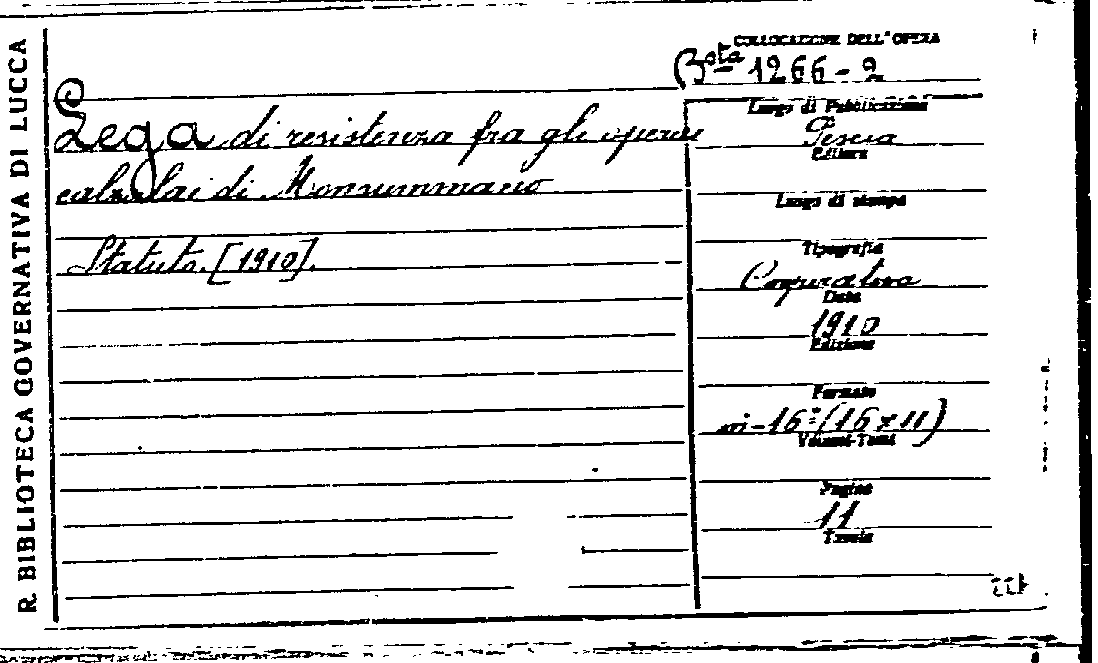 R. BIBLIOTECA GOVERNATIVA DI LUCCA
COLLOCAZIONE DELL'OPERA
Bsta 1266-9
Lega di resistenza fra gli operai
calzolai di Monsummano
Statuto. [1910].
Luogo di Pubblicazione
Pescia
Editore
Luogo di stampa
Tipografia
Cooperativa
Data
1910
Edizione
Formato
in-16° (16 x 11)
Volumi-Tomi
Pagine
11
Tavole